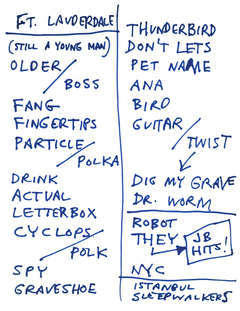 FT. LAUDERDALE
(STILL A YOUNG MAN)
OLDER
BOSS
FANG
FINGERTIPS
PARTICLE
POLKA
DRINK
ACTUAL
LETTERBOX
CYCLOPS
POLK
SPY
GRAVESHOE
THUNDERBIRD
DON'T LETS
PET NAME
ANA
BIRD
GUITAR
TWIST
DIG MY GRAVE
DR. WORM
ROBOT
THEY
JB
HITS!
NYC
ISTANBUL
SLEEPWALKERS